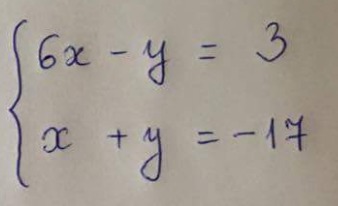 6x - y = 3
x + y = -17